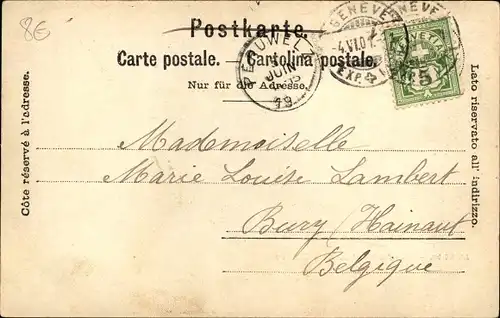 8€
Postkarte.
Carte postale. — Cartolina postale.
Nur für die Adresse.
Côte réservé à l'adresse.
Lato riservato all'indirizzo.
GENÈVE
-4.VI.01
EXP.
PERUWELZ
JUIN
19
HELVETIA
5
Mademoiselle
Marie Louise Lambert
Bury (Hainaut
Belgique